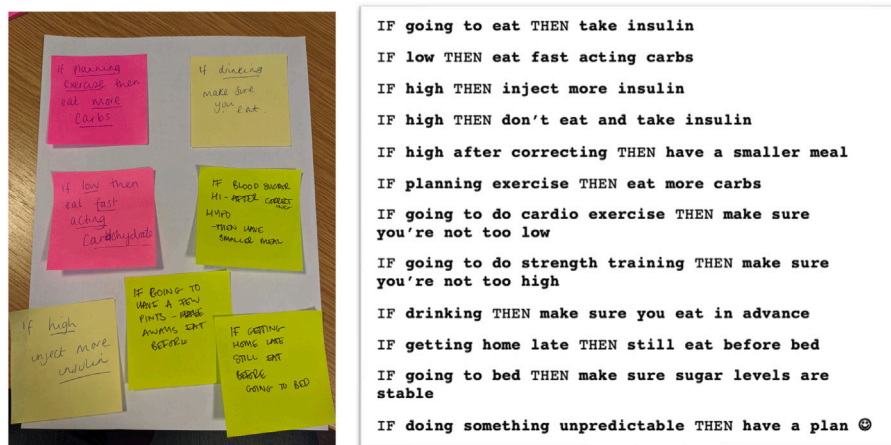 If planning
exercise then
eat more
carbs
If drinking
make sure
you eat
If low then
eat fast
acting
Carbohydrate
IF BLOOD SUGAR
HI - AFTER CORRECT
HYPO
- THEN HAVE
SMALLER MEAL
If high
inject more
insulin
IF GOING TO
HAVE A FEW
PINTS -
AWAYS EAT
BEFORE
IF GETTING
HOME LATE
STILL EAT
BEFORE
GOING TO BED
IF going to eat THEN take insulin
IF low THEN eat fast acting carbs
IF high THEN inject more insulin
IF high THEN don't eat and take insulin
IF high after correcting THEN have a smaller meal
IF planning exercise THEN eat more carbs
IF going to do cardio exercise THEN make sure
you're not too low
IF going to do strength training THEN make sure
you're not too high
IF drinking THEN make sure you eat in advance
IF getting home late THEN still eat before bed
IF going to bed THEN make sure sugar levels are
stable
IF doing something unpredictable THEN have a plan ☺